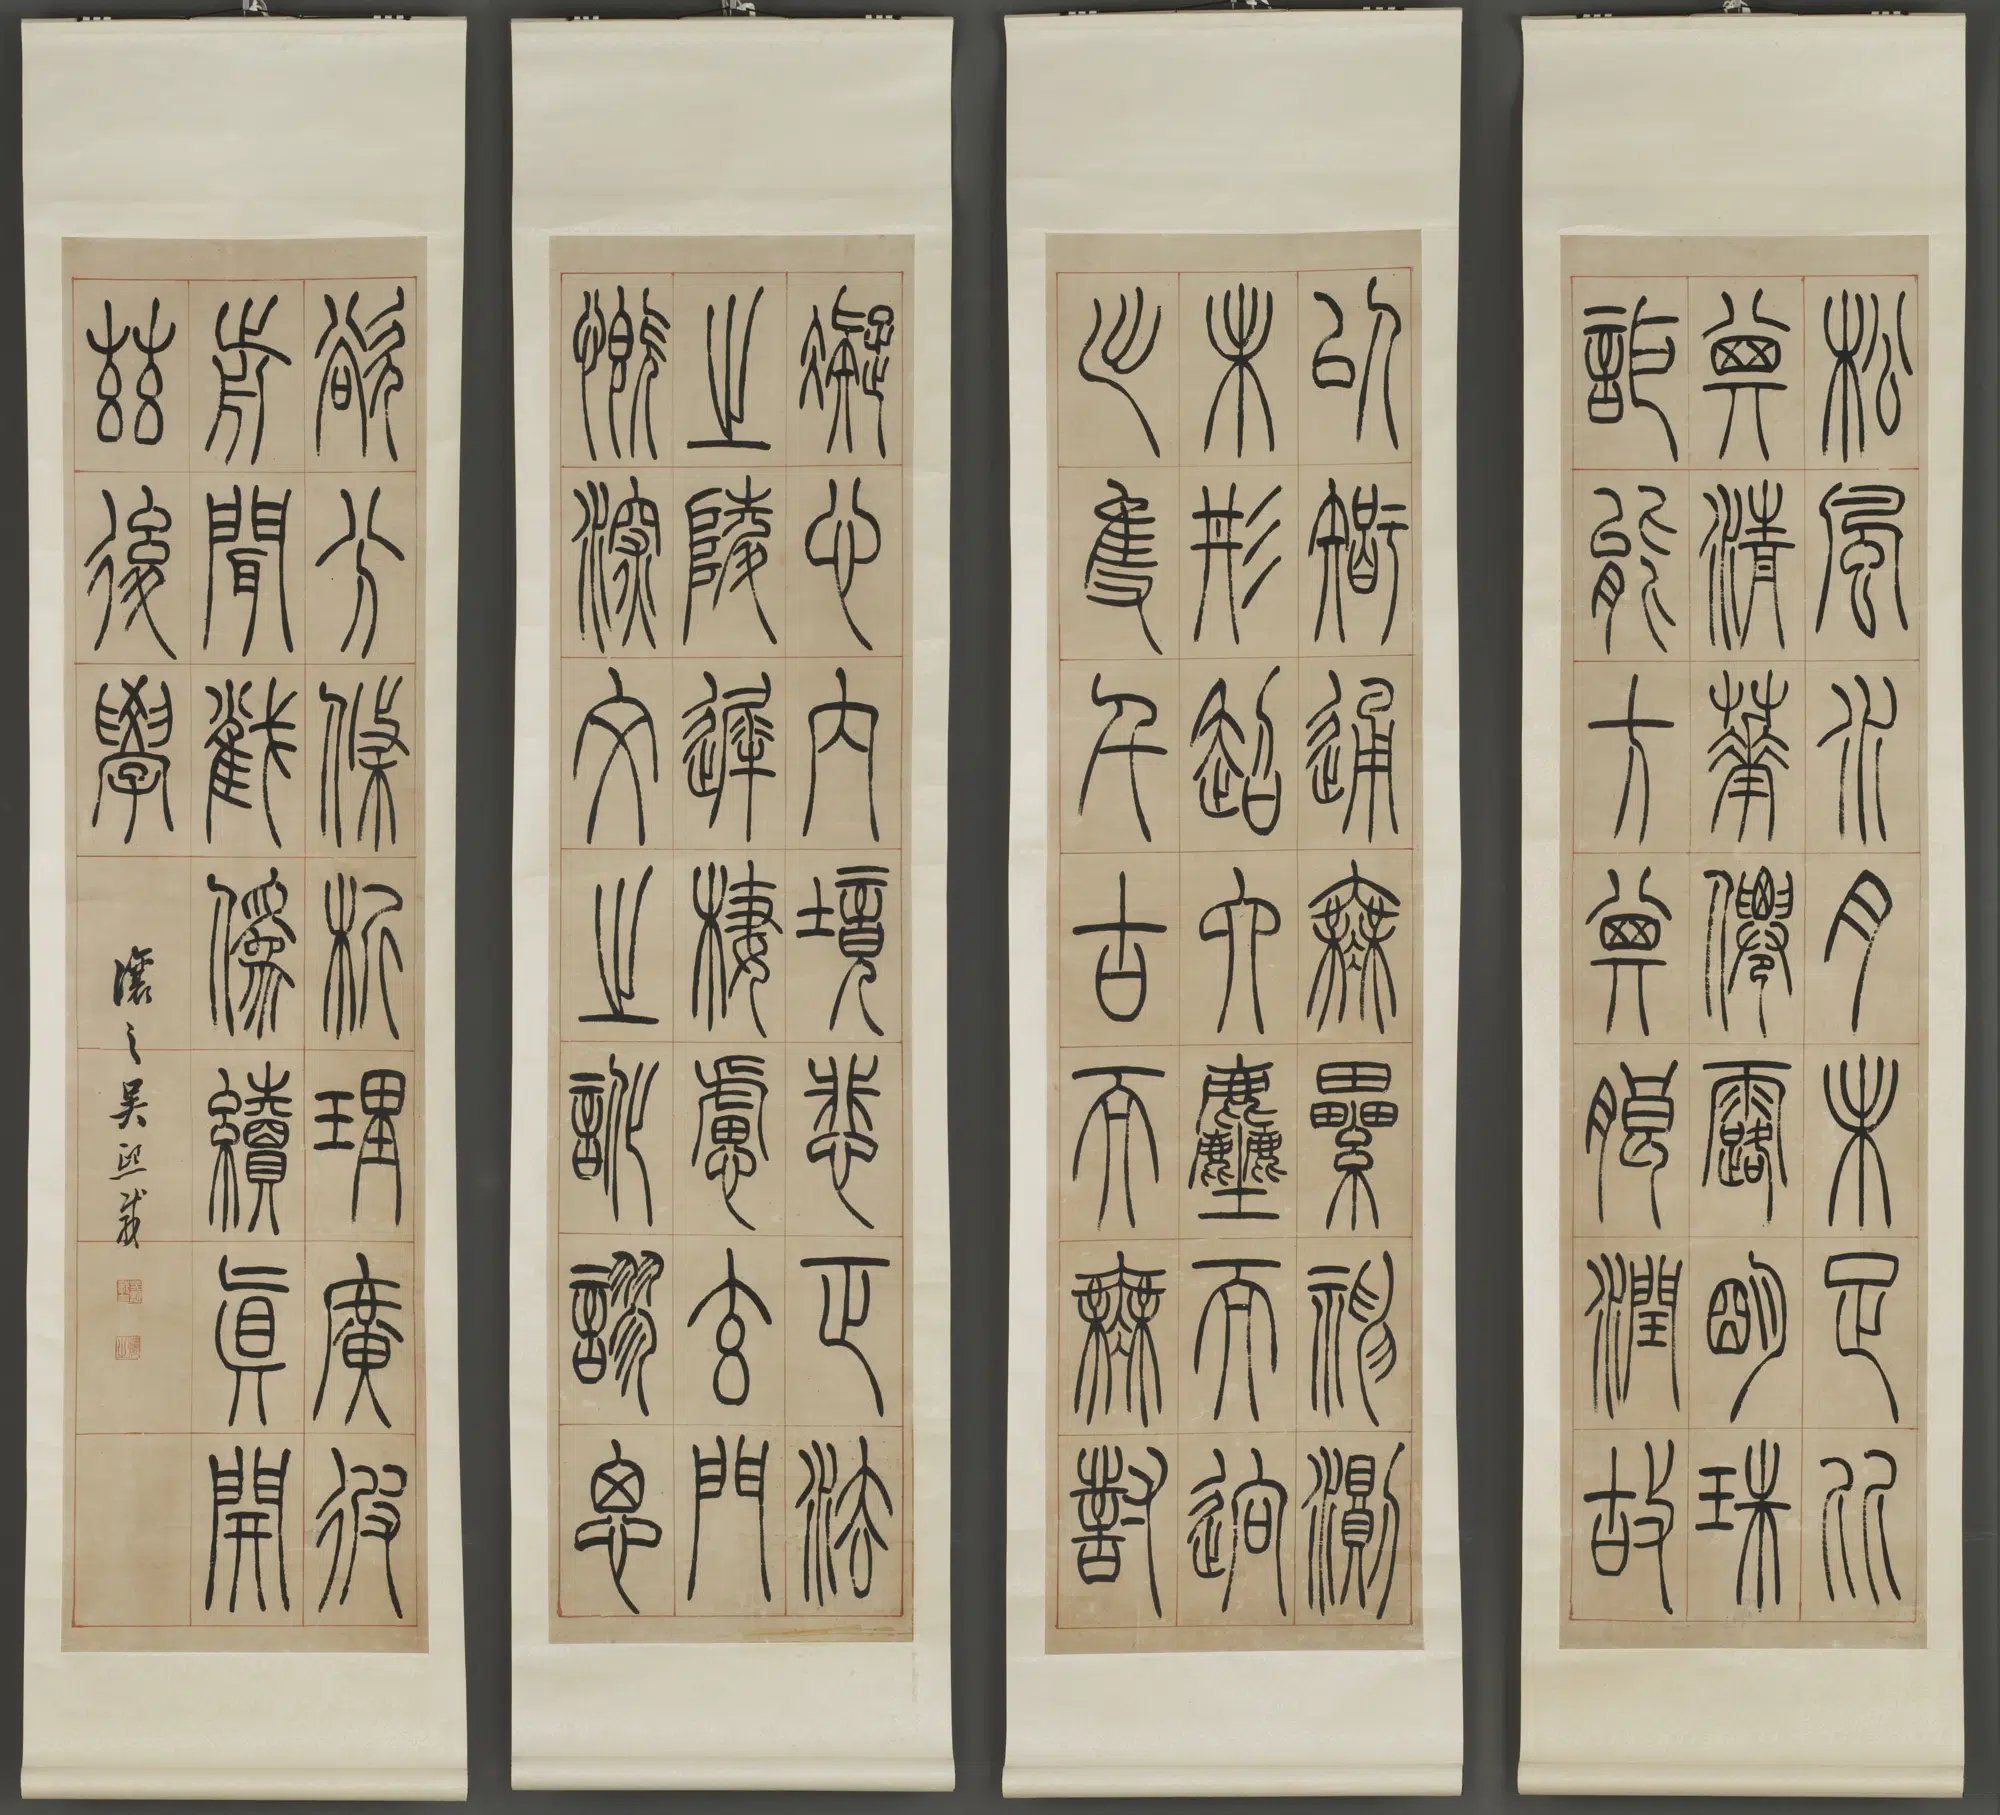 松風水月未足比
其清華僊露明珠
詎能方其朗潤故
以智通無累神測
未形超六塵而迥
出隻千古而無對
凝心內境悲正法
之陵遲棲慮玄門
慨深文之訛謬思
欲分條析理廣彼
前聞截偽續真開
茲後學
讓之吳熙載